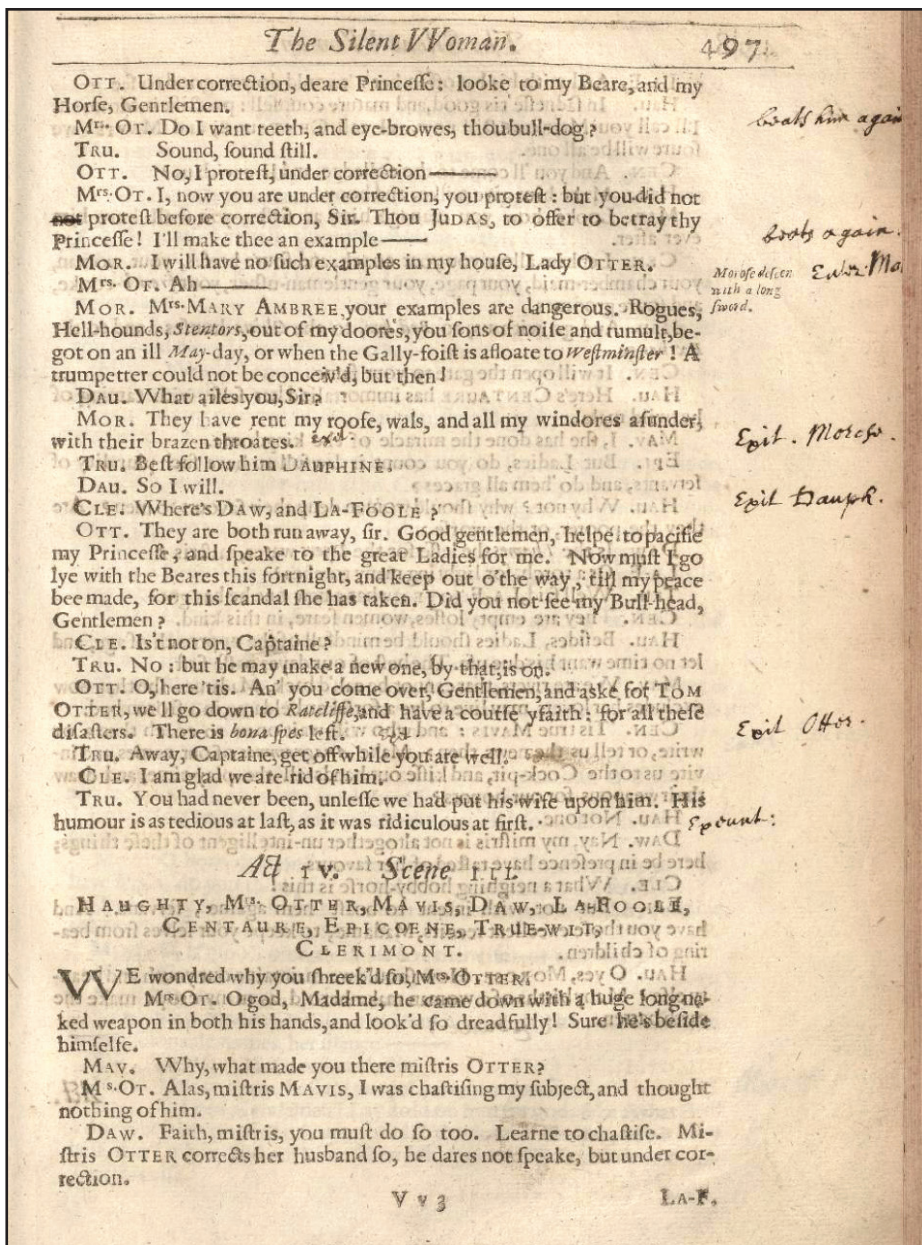 The Silent VVoman. 497
OTT. Under correction, deare Princesse: looke to my Beare, and my
Horse, Gentlemen.
Mrs. OT. Do I want teeth, and eye-browes, thou bull-dog?
beats him again
TRU. Sound, sound still.
OTT. No, I protest, under correction———
Mrs. OT. I, now you are under correction, you protest: but you did not
not protest before correction, Sir. Thou JUDAS, to offer to betray thy
beats again.
Princesse! I'll make thee an example——
MOR. I will have no such examples in my house, Lady OTTER.
Morose descen
with a long
sword.
Enter Mo
Mrs. OT. Ah———
MOR. Mrs. MARY AMBREE, your examples are dangerous. Rogues,
Hell-hounds, Stentors, out of my doores, you sons of noise and tumult, be-
got on an ill May-day, or when the Gally-foist is afloate to Westminster! A
trumpetter could not be conceiv'd, but then!
DAU. What ailes you, Sir?
MOR. They have rent my roofe, wals, and all my windores asunder,
with their brazen throates. exit.
Exit. Morose.
TRU. Best follow him DAUPHINE.
DAU. So I will.
Exit Dauph.
CLE. Where's DAW, and LA-FOOLE?
OTT. They are both run away, sir. Good gentlemen, helpe to pacifie
my Princesse, and speake to the great Ladies for me. Now must I go
lye with the Beares this fortnight, and keep out o'the way, till my peace
bee made, for this scandal she has taken. Did you not see my Bull-head,
Gentlemen?
CLE. Is't not on, Captaine?
TRU. No: but he may make a new one, by that, is on.
OTT. O, here 'tis. An' you come over, Gentlemen, and aske for TOM
OTTER, we'll go down to Ratcliffe, and have a course yfaith: for all these
disasters. There is bona spes left.
Exit Otter.
TRU. Away, Captaine, get off while you are well.
CLE. I am glad we are rid of him.
TRU. You had never been, unlesse we had put his wife upon him. His
humour is as tedious at last, as it was ridiculous at first.
Exeunt:
Act IV. Scene III.
HAUGHTY, Ms. OTTER, MAVIS, DAW, LA-FOOLE,
CENTAURE, EPICOENE, TRUE-WIT,
CLERIMONT.
WE wondred why you shreek'd so, Mrs. OTTER.
Ms. OT. O god, Madame, he came down with a huge long na-
ked weapon in both his hands, and look'd so dreadfully! Sure he's beside
himselfe.
MAV. Why, what made you there mistris OTTER?
Ms. OT. Alas, mistris MAVIS, I was chastising my subject, and thought
nothing of him.
DAW. Faith, mistris, you must do so too. Learne to chastise. Mi-
stris OTTER corrects her husband so, he dares not speake, but under cor-
rection.
V v 3 LA-F.